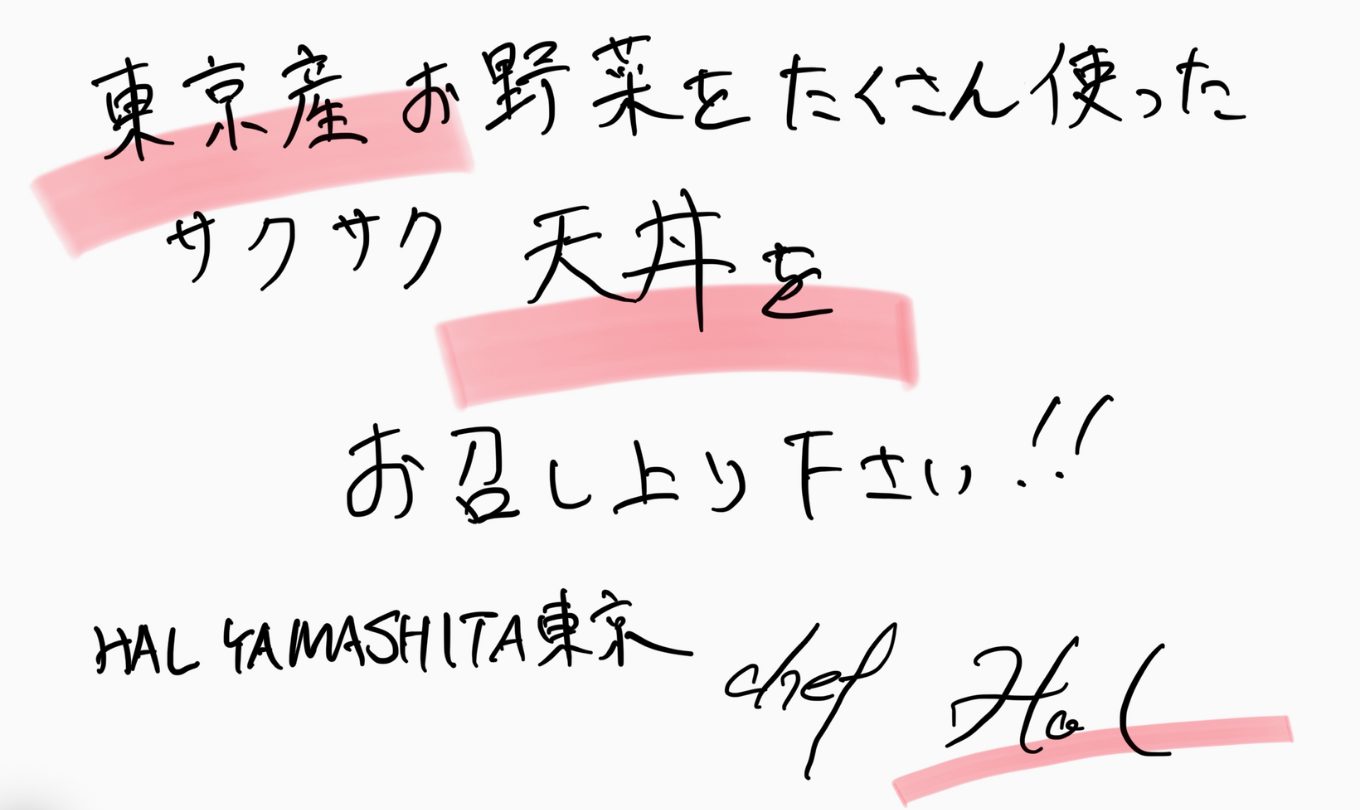 東京産お野菜をたくさん使った
サクサク 天丼を
お召し上り下さい!!
HAL YAMASHITA東京
chef Hal